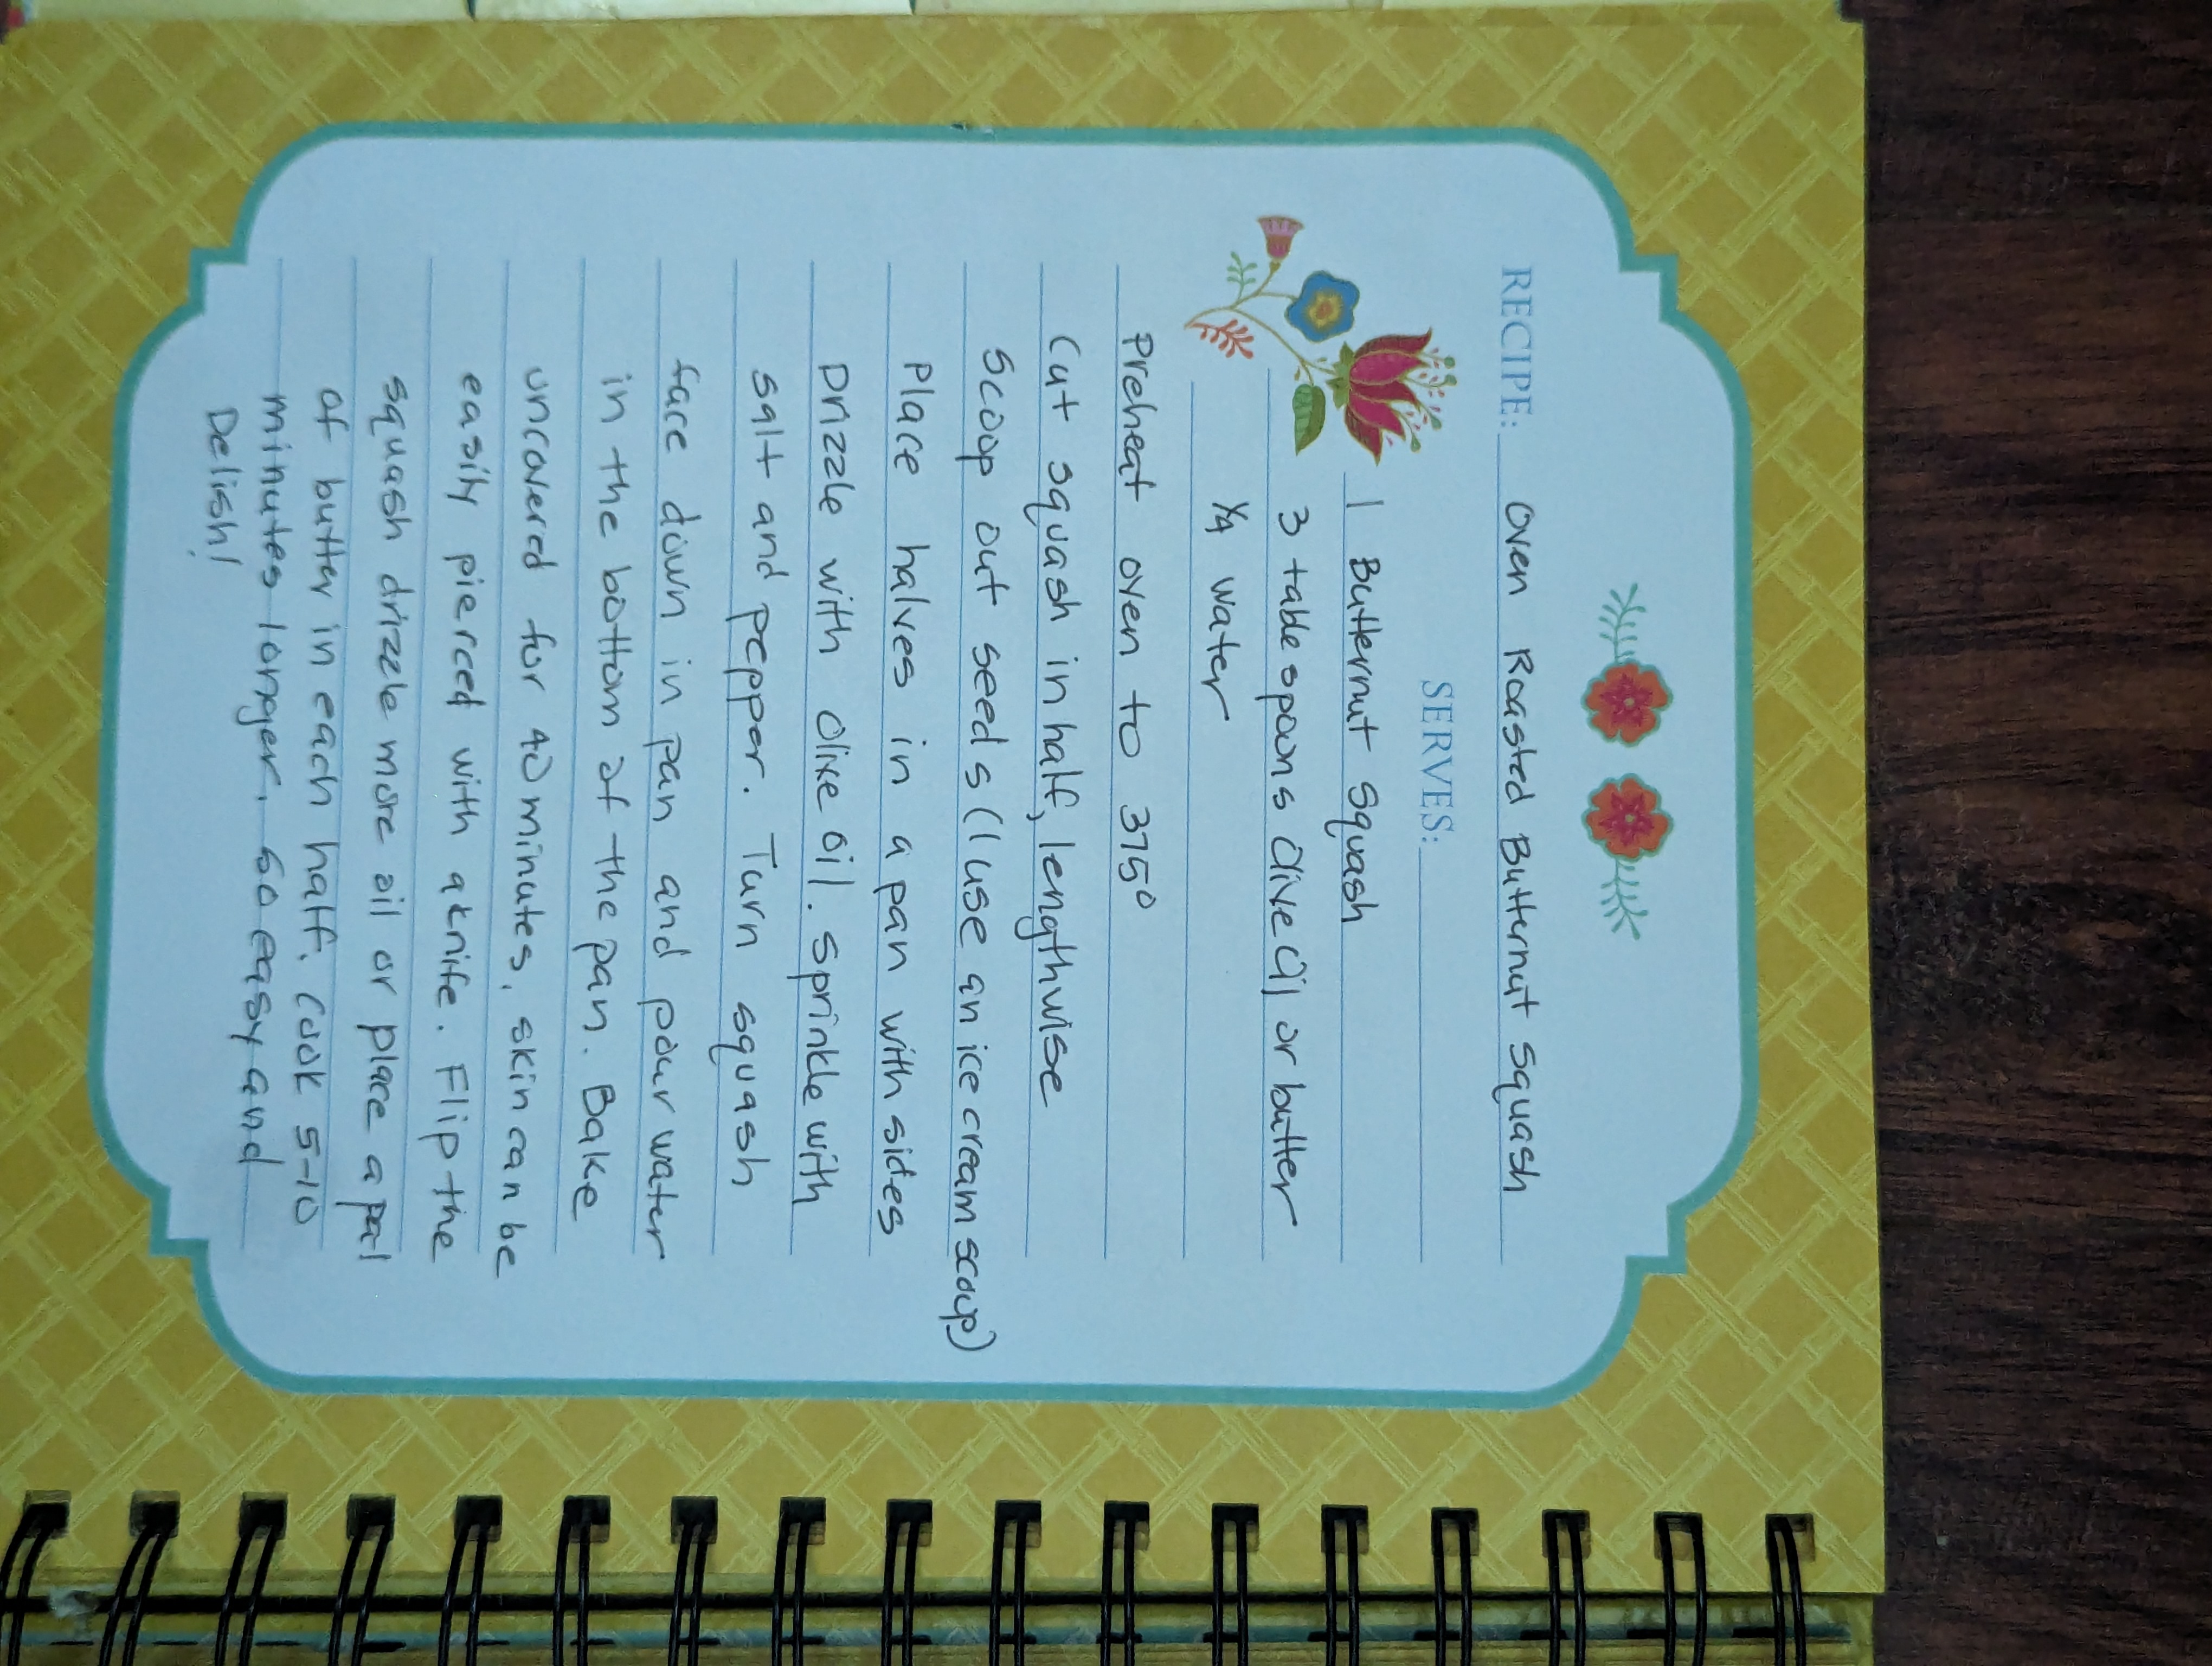 RECIPE: Oven Roasted Butternut Squash
SERVES:
1 Butternut Squash
3 tablespoons Olive Oil or butter
1/4 water
Preheat oven to 375°
Cut squash in half, lengthwise
Scoop out seeds (I use an ice cream scoop)
Place halves in a pan with sides
Drizzle with olive oil. Sprinkle with
salt and pepper. Turn squash
face down in pan and pour water
in the bottom of the pan. Bake
uncovered for 40 minutes, skin can be
easily pierced with a knife. Flip the
squash drizzle more oil or place a pal
of butter in each half. Cook 5-10
minutes longer. So easy and
Delish!